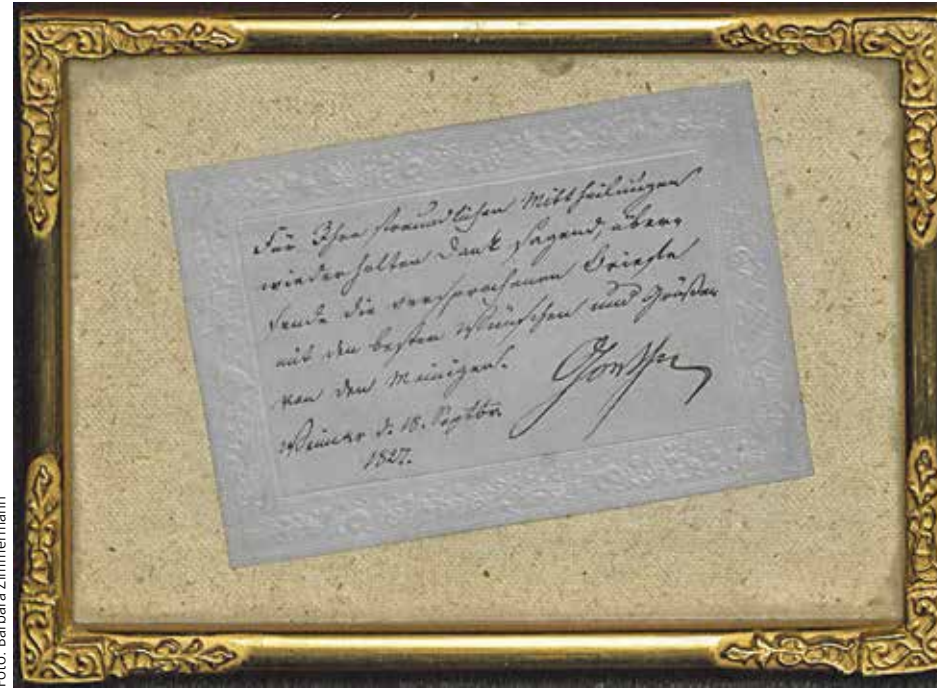 Für Ihre freundlichen Mittheilungen
wiederholten Dank sagend, über-
sende die versprochenen
mit den besten Wünschen und Grüßen
von den Meinigen.
Goethe
Weimar d. 18. Septbr.
1827.
Foto: Barbara Zimmermann